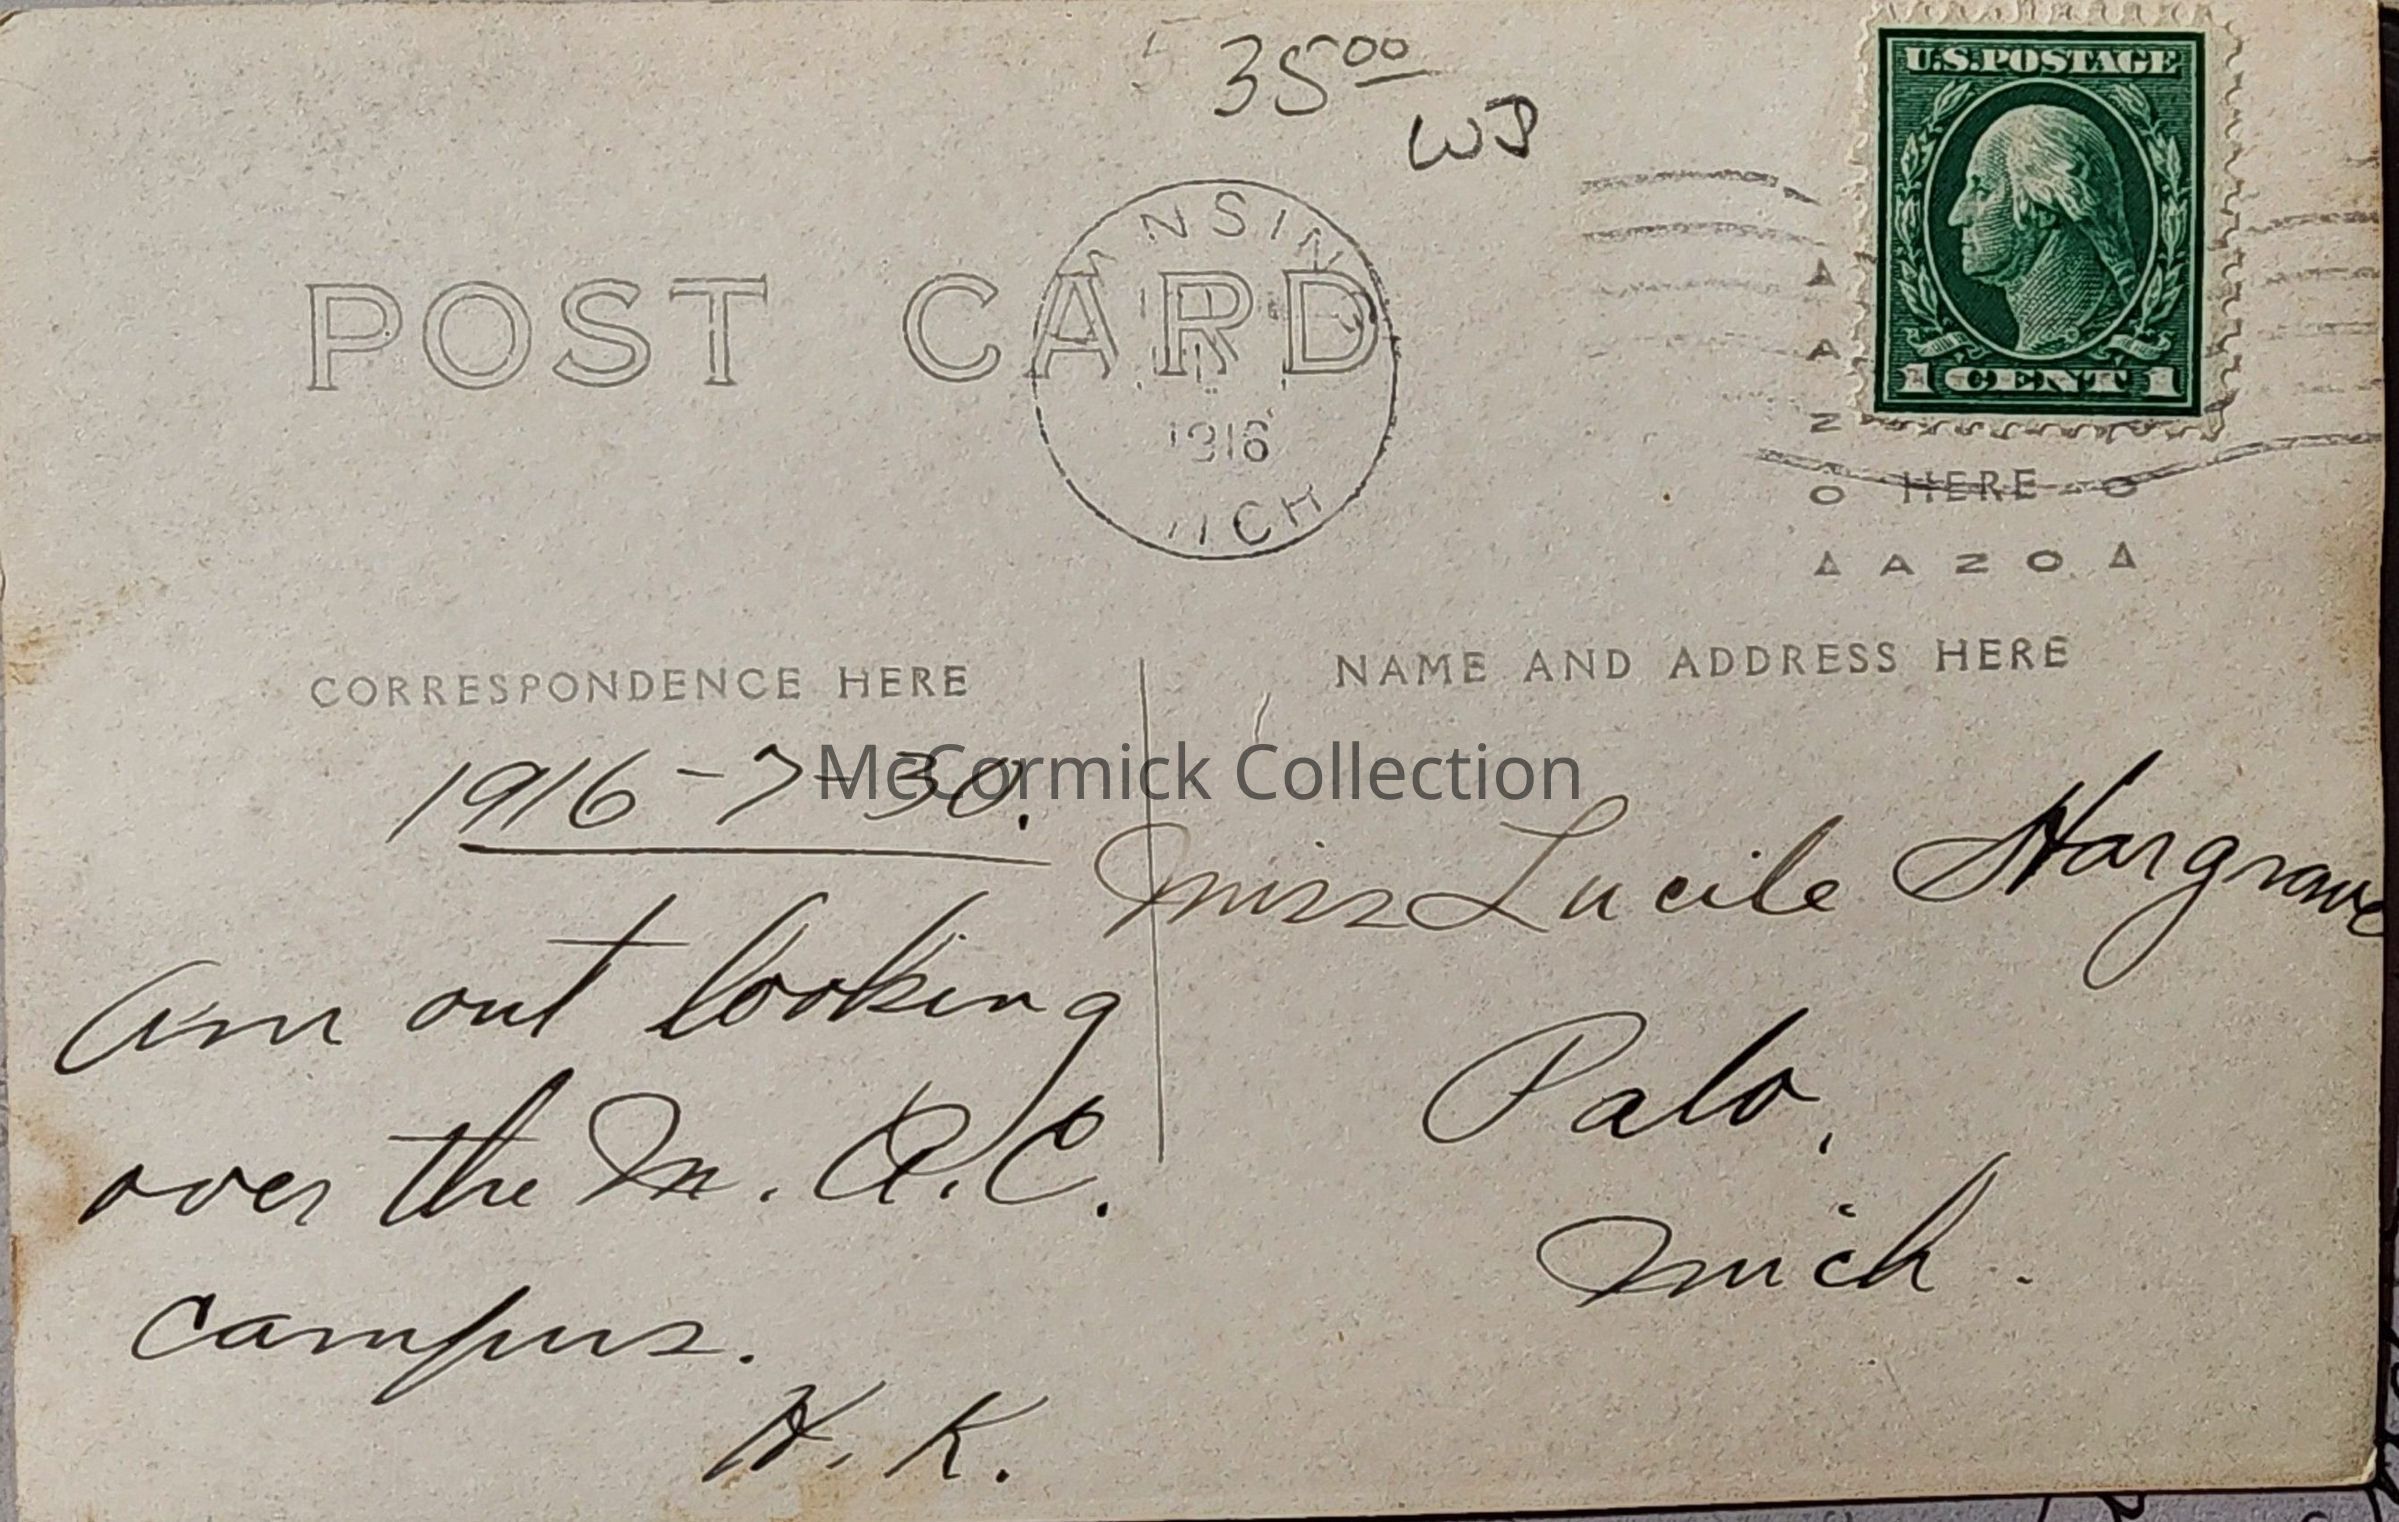 35 00
WJ
U.S. POSTAGE
1 CENT 1
POST CARD
NSIN
1916
ICH
A
A
N
O HERE O
A A Z O A
CORRESPONDENCE HERE
NAME AND ADDRESS HERE
McCormick Collection
1916-7-30.
Am out looking
over the M.A.C.
campus.
H. K.
Miss Lucile Hargrave
Palo,
Mich.